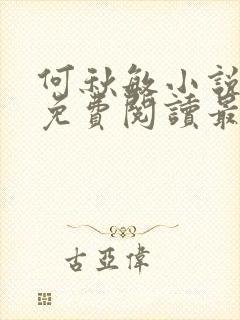 何秋敏小說
免費閱讀最
古亞偉